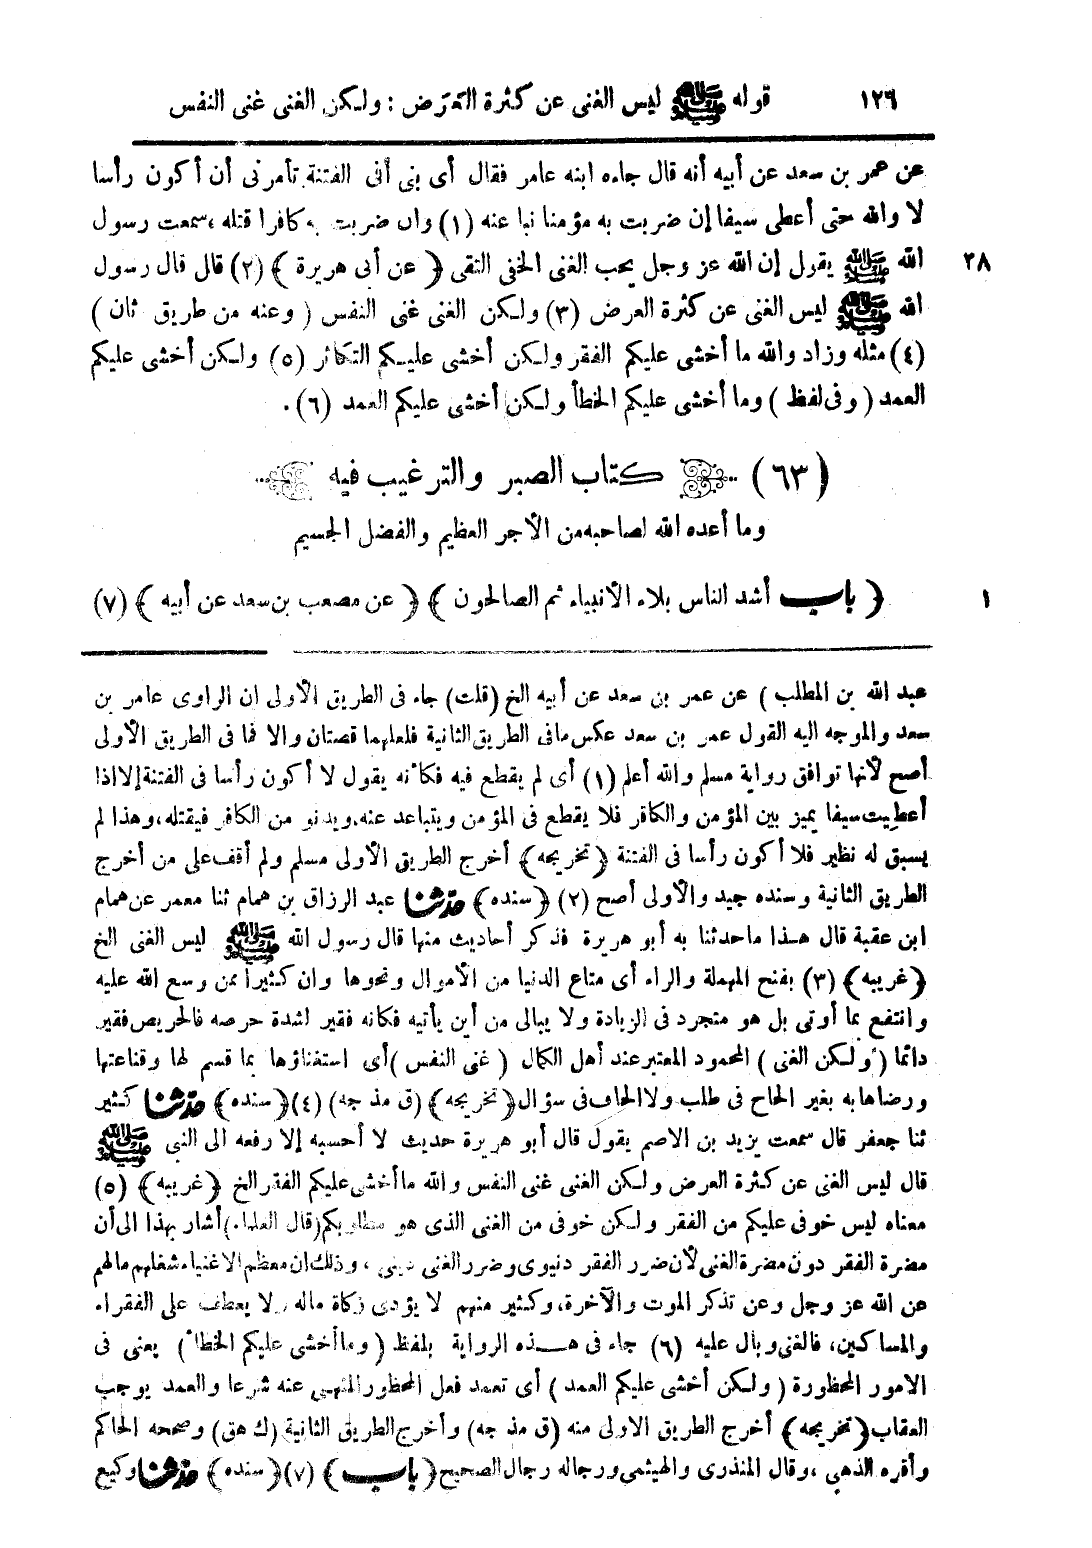 ١٢٦ قوله ﷺ ليس الغنى عن كثرة العَرَض : ولكن الغنى غنى النفس
عن عمر بن سعد عن أبيه أنه قال جاءه ابنه عامر فقال أى بنى أفى الفتنة تأمرنى أن أكون رأسا
لا والله حتى أعطى سيفا إن ضربت به مؤمنا نبا عنه (١) وان ضربت به كافرا قتله ، سمعت رسول
٣٨ الله ﷺ يقول إن الله عز وجل يحب الغنى الخفى التقى ﴿ عن أبى هريرة ﴾ (٢) قال قال رسول
الله ﷺ ليس الغنى عن كثرة العرض (٣) ولكن الغنى غنى النفس ( وعنه من طريق ثان )
(٤) مثله وزاد والله ما أخشى عليكم الفقر ولكن أخشى عليكم التكاثر (٥) ولكن أخشى عليكم
العمد ( وفى لفظ ) وما أخشى عليكم الخطأ ولكن أخشى عليكم العمد (٦) .
(٦٣) كتاب الصبر والترغيب فيه
وما أعده الله لصاحبه من الأجر العظيم والفضل الجسيم
١ ﴿ باب أشد الناس بلاء الأنبياء ثم الصالحون ﴾ ﴿ عن مصعب بن سعد عن أبيه ﴾ (٧)
عبد الله بن المطلب ) عن عمر بن سعد عن أبيه الخ (قلت) جاء فى الطريق الأولى ان الراوى عامر بن
سعد والموجه اليه القول عمر بن سعد عكس مافى الطريق الثانية فلعلهما قصتان والا فما فى الطريق الأولى
أصح لأنها توافق رواية مسلم والله أعلم (١) أى لم يقطع فيه فكأنه يقول لا أكون رأسا فى الفتنة إلا اذا
أعطيت سيفا يميز بين المؤمن والكافر فلا يقطع فى المؤمن ويتباعد عنه، ويدنو من الكافر فيقتله، وهذا لم
يسبق له نظير فلا أكون رأسا فى الفتنة ﴿تخريجه﴾ أخرج الطريق الأولى مسلم ولم أقف على من أخرج
الطريق الثانية وسنده جيد والأولى أصح (٢) ﴿سنده﴾ حدثنا عبد الرزاق بن همام ثنا معمر عن همام
ابن عقبة قال هذا ما حدثنا به أبو هريرة فذكر أحاديث منها قال رسول الله ﷺ ليس الغنى الخ
﴿غريبه﴾ (٣) بفتح المهملة والراء أى متاع الدنيا من الأموال ونحوها وان كثيراً ممن وسع الله عليه
وانتفع بما أوتى بل هو متجرد فى الزيادة ولا يبالى من أين يأتيه فكانه فقير لشدة حرصه فالحريص فقير
دائما ( ولكن الغنى ) المحمود المعتبر عند أهل الكمال ( غنى النفس ) أى استغناؤها بما قسم لها وقناعتها
ورضاها به بغير الحاح فى طلب ولا الحاف فى سؤال ﴿تخريجه﴾ (ق مذ جه) (٤) ﴿سنده﴾ حدثنا كثير
ثنا جعفر قال سمعت يزيد بن الاصم يقول قال أبو هريرة حديث لا أحسبه إلا رفعه الى النبى ﷺ
قال ليس الغنى عن كثرة العرض ولكن الغنى غنى النفس والله ما أخشى عليكم الفقر الخ ﴿غريبه﴾ (٥)
معناه ليس خوفى عليكم من الفقر ولكن خوفى من الغنى الذى هو مطلوبكم (قال العلماء) أشار بهذا الى أن
مضرة الفقر دون مضرة الغنى لأن ضرر الفقر دنيوى وضرر الغنى دينى ، وذلك ان معظم الاغنياء شغلهم مالهم
عن الله عز وجل وعن تذكر الموت والآخرة، وكثير منهم لا يؤدى زكاة ماله ولا يعطف على الفقراء
والمساكين، فالغنى وبال عليه (٦) جاء فى هذه الرواية بلفظ ( وما أخشى عليكم الخطأ ) يعنى فى
الامور المحظورة ( ولكن أخشى عليكم العمد ) أى تعمد فعل المحظور المنهى عنه شرعا والعمد يوجب
العقاب ﴿تخريجه﴾ أخرج الطريق الاولى منه (ق مذ جه) وأخرج الطريق الثانية (ك هق) وصححه الحاكم
وأقره الذهبى ، وقال المنذرى والهيثمى ورجاله رجال الصحيح ﴿ باب ﴾ (٧) ﴿سنده﴾ حدثنا وكيع